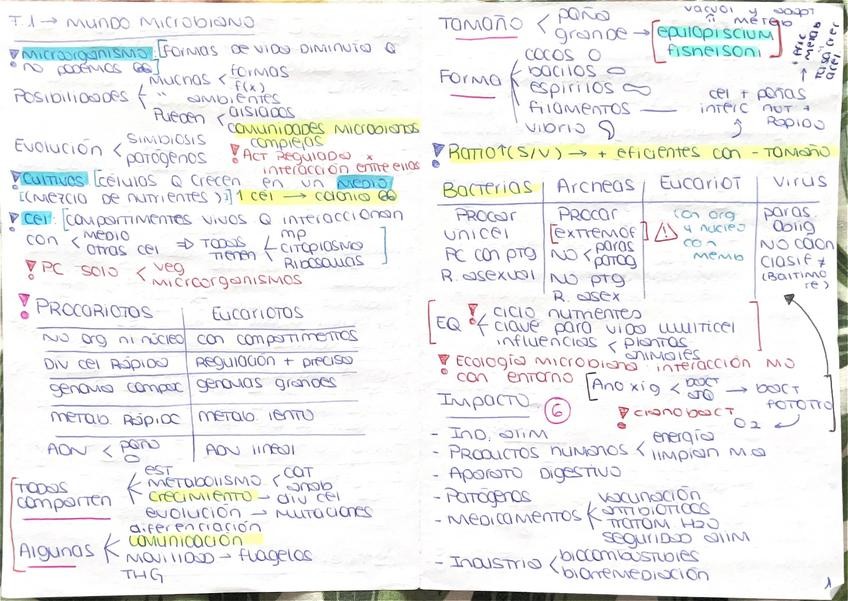 T.1 → MUNDO MICROBIANO
MICROORGANISMO: [FORMAS DE VIDA DIMINUTA Q
NO PODEMOS
POSIBILIDADES < MUCHAS < FORMAS
F(X)
" AMBIENTES
PUEDEN < AISLADOS
COMUNIDADES MICROBIANAS
COMPLEJAS
EVOLUCIÓN < SIMBIOSIS
PATÓGENOS
ACT REGULADA X
INTERACCIÓN ENTRE ELLAS
CULTIVOS [CÉLULAS Q CRECEN EN UN MEDIO
[(MEZCLA DE NUTRIENTES)] 1 CEL → COLONIA
CEL: [COMPARTIMENTES VIVOS Q INTERACCIONAN
CON < MEDIO
OTRAS CEL ⇒ TODAS TIENEN < MP
CITOPLASMA
RIBOSOMAS
PC SOLO < VEG
MICROORGANISMOS
PROCARIOTAS EUCARIOTAS
NO ORG NI NÚCLEO CON COMPARTIMENTOS
DIV CEL RÁPIDA REGULACIÓN + PRECISA
GENOMA COMPAC GENOMAS GRANDES
METAB. RÁPIDO METAB. LENTO
ADN < PEÑO ADN LINEAL
O
TODOS COMPARTEN < EST
METABOLISMO < CAT
ANAB
CRECIMIENTO → DIV CEL
EVOLUCIÓN → MUTACIONES
ALGUNAS < DIFERENCIACIÓN
COMUNICACIÓN
MOVILIDAD → FLAGELOS
THG
TAMAÑO < PEÑO
GRANDE → [EPULOPISCIUM
FISHELSONI]
FORMA < COCOS O
BACILOS
ESPIRILOS
FILAMENTOS
VIBRIO
CEL + PEÑAS
INTERC NUT +
RÁPIDO
RATIO↑(S/V) → + EFICIENTES CON - TAMAÑO
BACTERIAS ARCHEAS EUCARIOT VIRUS
PROCAR PROCAR CON ORG PARAS
UNICEL [EXTREMOF] Y NÚCLEO OBLIG
PC CON PTG NO < PARAS CON NO CÓDN
PATÓG MEMB
R. ASEXUAL NO PTG CLASIF ≠
R. ASEX (BALTIMORE)
EQ < CICLO NUTRIENTES
CLAVE PARA VIDA MULTICEL
INFLUENCIAS < PLANTAS
ANIMALES
ECOLOGÍA MICROBIANA: INTERACCIÓN MO
CON ENTORNO [ANOXIG < BACT
→ BACT
FOTOTRO
CIANOBACT
O2
IMPACTO 6
- IND. ALIM
- PRODUCTOS HUMANOS < ENERGÍA
LIMPIAN
- APARATO DIGESTIVO
- PATÓGENOS
- MEDICAMENTOS < VACUNACIÓN
ANTIBIÓTICOS
TRATAM H2O
SEGURIDAD ALIM
- INDUSTRIA < BIOCOMBUSTIBLES
BIORREMEDIACIÓN
1